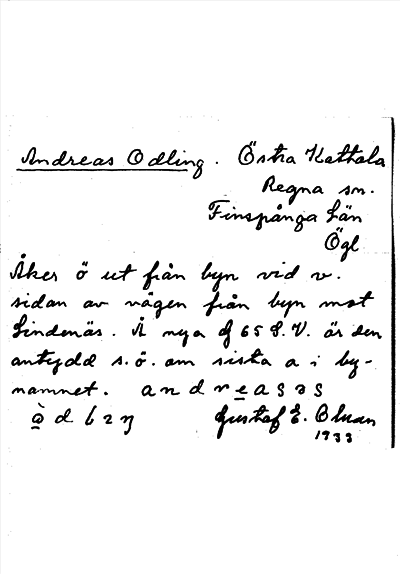 Andreas Odling. Östra Kattala
Regna sn.
Finspånga Län
Ögl
Åker ö ut från byn vid v.
sidan av vägen från byn mot
Lindenäs. Å nya 65 S.V. är den
antydd s.ö. om sista a i by-
namnet. andreas
Gustaf E. Olman
1933